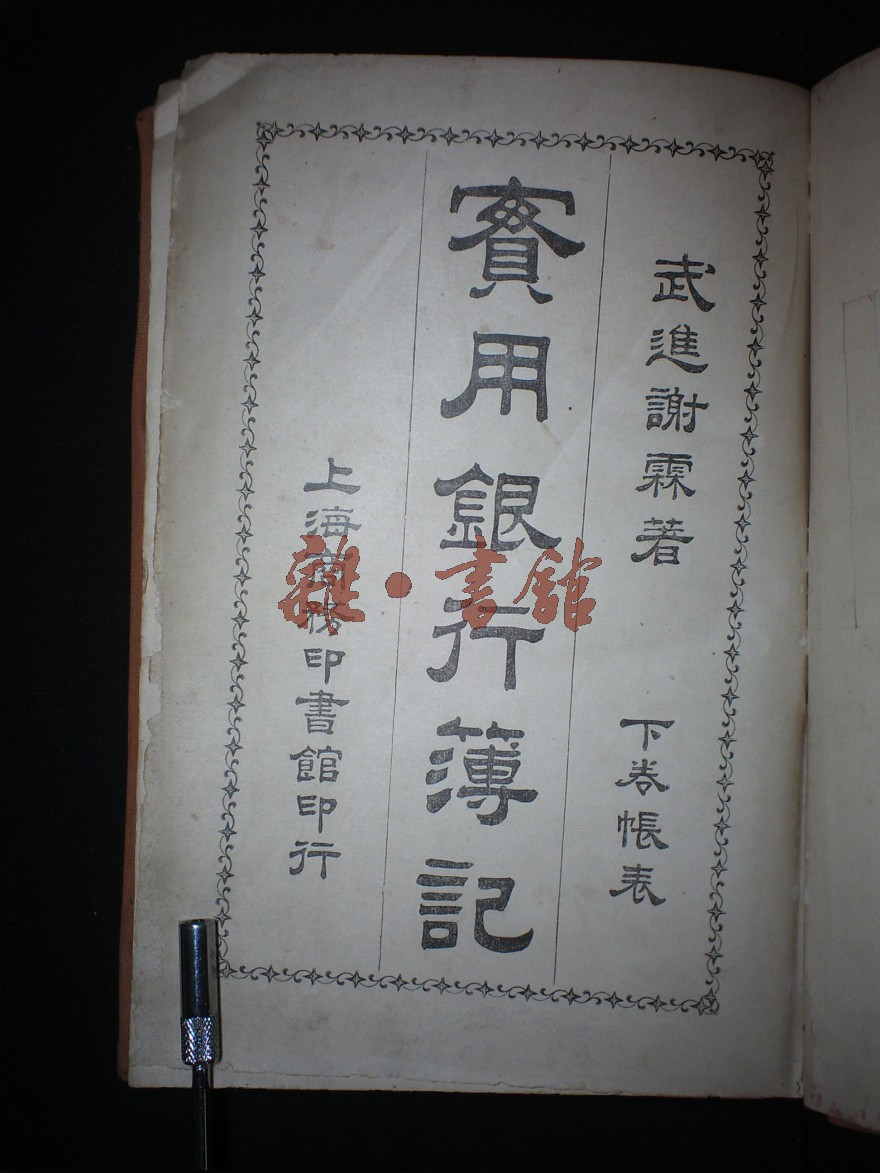 武進謝霖著
下卷帳表
實用銀行簿記
上海商務印書館印行
雜·書館